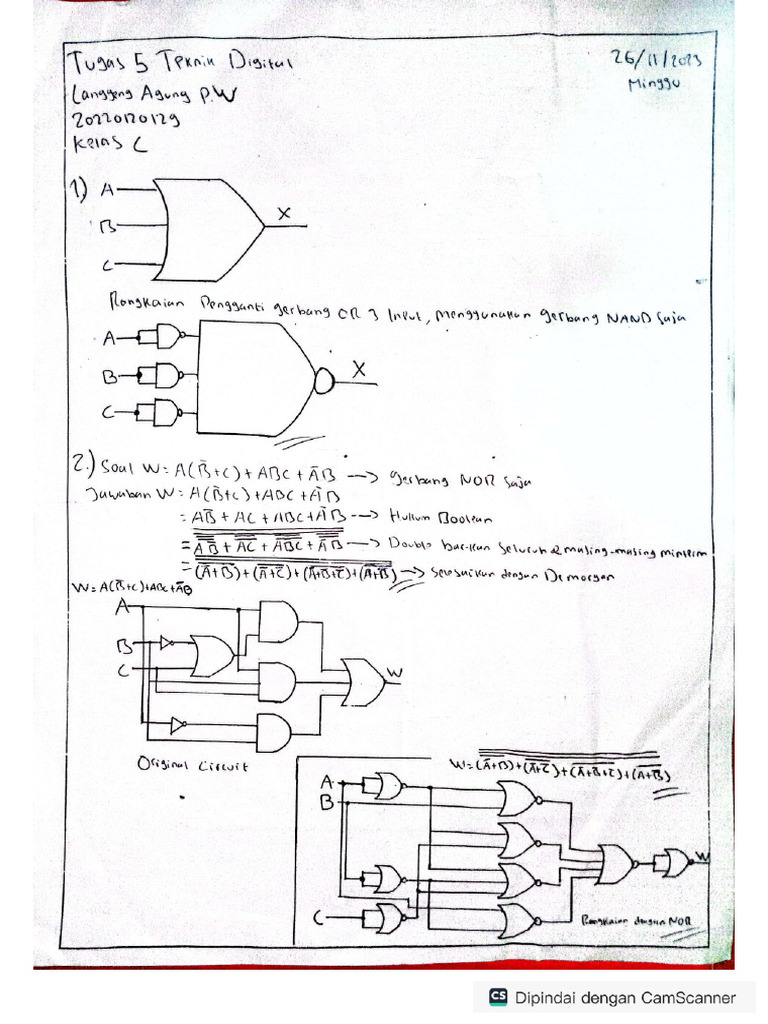 Tugas 5 Teknik Digital
26/11/2023
Minggu
Langgeng Agung P.W
20220120129
Kelas C
1)
A
B
C
X
Rangkaian Pengganti gerbang OR 3 Input, menggunakan gerbang NAND saja
A
B
C
X
2.) Soal W = A(B̅+C) + ABC + A̅B → gerbang NOR saja
Jawaban W = A(B̅+C) + ABC + A̅B
= AB̅ + AC + ABC + A̅B → Hukum Boolean
= AB̅ + AC + ABC + A̅B → Double bar-kan seluruh & masing-masing minterm
= (A̅+B) + (A̅+C̅) + (A̅+B̅+C̅) + (A+B̅) → selesaikan dengan Demorgan
W = A(B̅+C)+ABC+A̅B
A
B
C
W
Original Circuit
W = (A̅+B) + (A̅+C̅) + (A̅+B̅+C̅) + (A+B̅)
A
B
C
W
Rangkaian dengan NOR
CS Dipindai dengan CamScanner